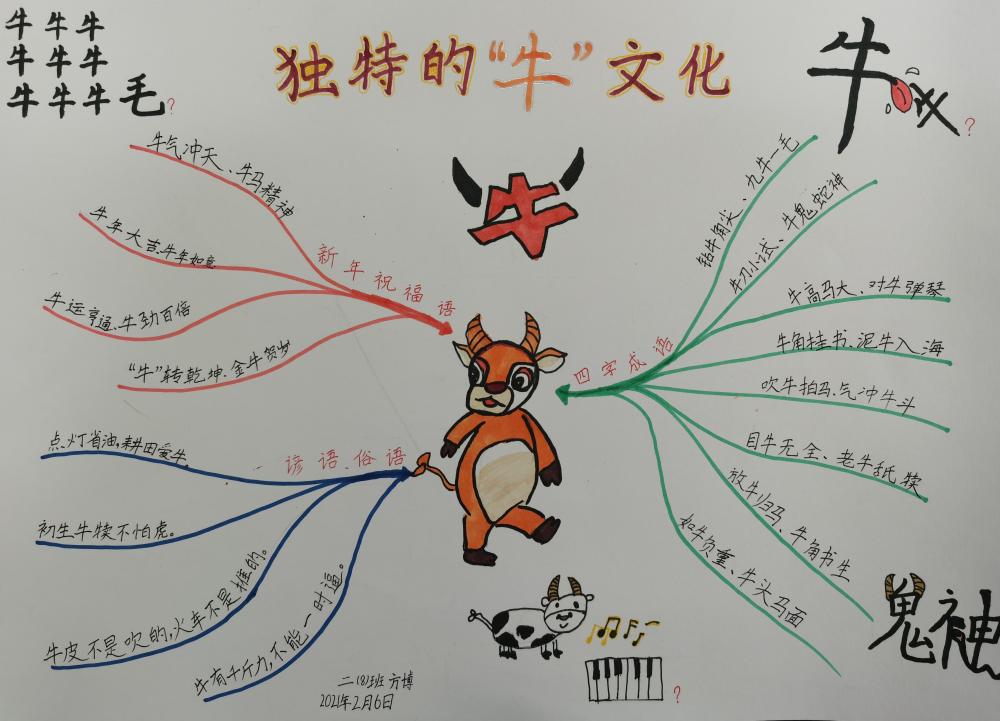 牛 牛 牛
牛 牛 牛
牛 牛 牛 毛?
独特的“牛”文化
牛
?
牛气冲天、牛马精神
牛年大吉、牛年如意
牛运亨通、牛劲百倍
“牛”转乾坤、金牛贺岁
新年祝福语
牛
钻牛角尖、九牛一毛
牛刀小试、牛鬼蛇神
牛高马大、对牛弹琴
牛角挂书、泥牛入海
吹牛拍马、气冲牛斗
目牛无全、老牛舐犊
放牛归马、牛角书生
如牛负重、牛头马面
四字成语
点灯省油,耕田爱牛。
初生牛犊不怕虎。
牛皮不是吹的,火车不是推的。
牛有千斤力,不能一时逼。
谚语、俗语
二(8)班 方博
2021年2月6日
?
鬼神